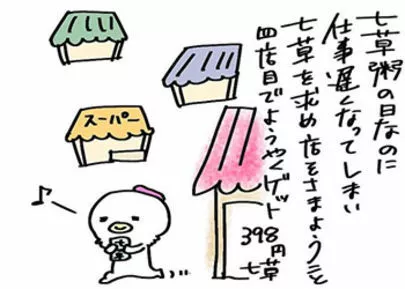 七草粥の日なのに
仕事遅くなってしまい
七草を求め店をさまようこと
四店目でようやくゲット
398円
七草
スーパー
七草